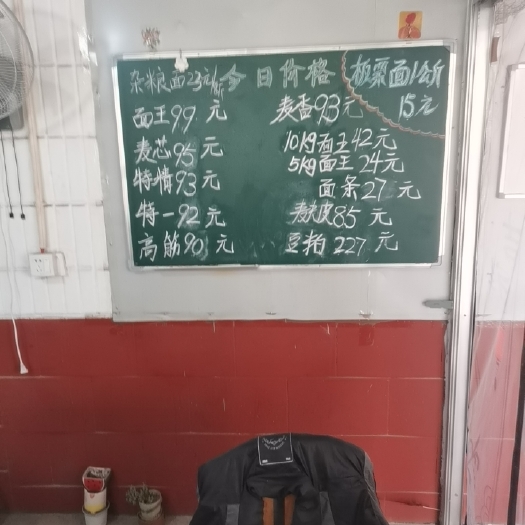 今日价格
杂粮面23元/斤
面王99元
麦芯95元
特精93元
特一92元
高筋90元
麦香93元
10kg面王42元
5kg面王24元
面条27元
麸皮85元
豆粕227元
板栗面1公斤
15元